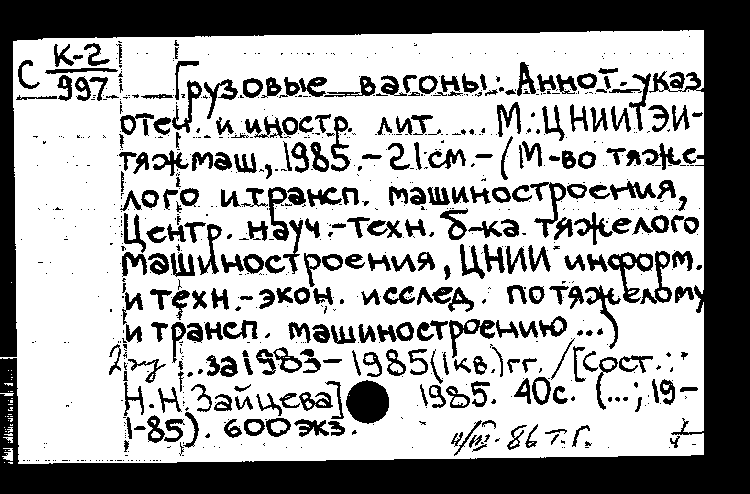 С К-2
997
Грузовые вагоны: Аннот. указ
отеч. и иностр. лит. ... М.: ЦНИИТЭИ-
тяжмаш, 1985. - 21 см. - (М-во тяже-
лого и трансп. машиностроения,
Центр. науч.-техн. б-ка тяжелого
машиностроения, ЦНИИ информ.
и техн.-экон. исслед. по тяжелому
и трансп. машиностроению ...)
...за 1983-1985 (1 кв.) гг. / [Сост.:
Н.Н. Зайцева] 1985. 40с. (...; 19-
1-85). 600 экз.
86 т.г.